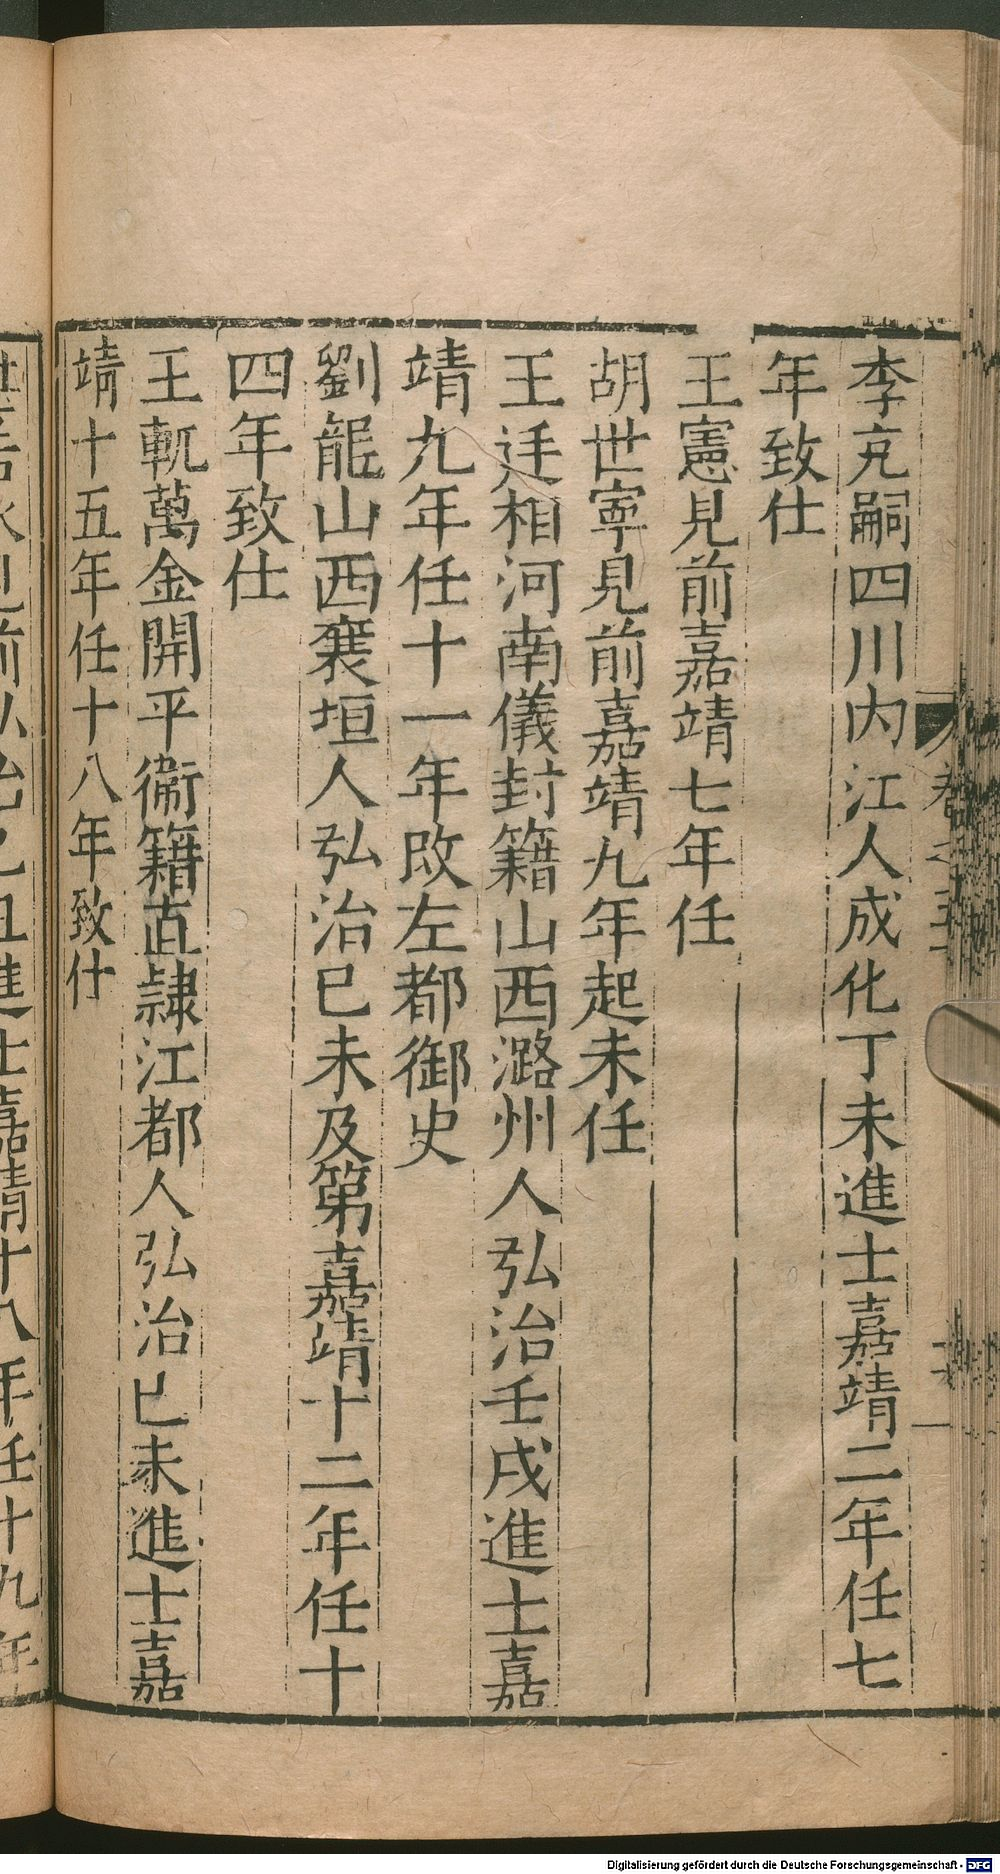 李充嗣四川內江人成化丁未進士嘉靖二年任七
年致仕
王憲見前嘉靖七年任
胡世寧見前嘉靖九年起未任
王廷相河南儀封籍山西潞州人弘治壬戌進士嘉
靖九年任十一年改左都御史
劉龍山西襄垣人弘治巳未及第嘉靖十二年任十
四年致仕
王軏萬金開平衞籍直隷江都人弘治巳未進士嘉
靖十五年任十八年致仕
見前弘治巳丑進士嘉靖十八年任十九年
Digitalisierung gefördert durch die Deutsche Forschungsgemeinschaft - DFG